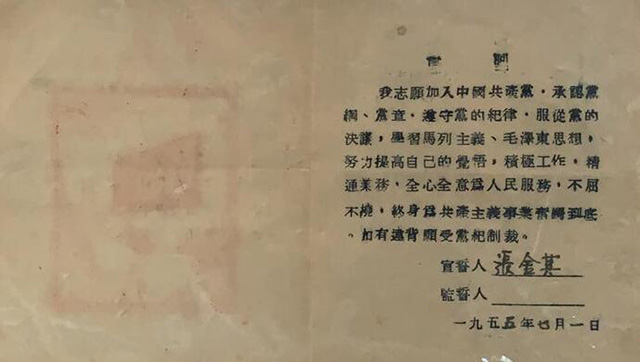 誓詞
我志願加入中國共產黨，承認黨
綱、黨章，遵守黨的紀律，服從黨的
決議，學習馬列主義、毛澤東思想，
努力提高自己的覺悟，積極工作，精
通業務，全心全意爲人民服務，不屈
不撓，終身爲共產主義事業奮鬥到底
。如有違背願受黨紀制裁。
宣誓人 張金其
監誓人
一九五五年七月一日